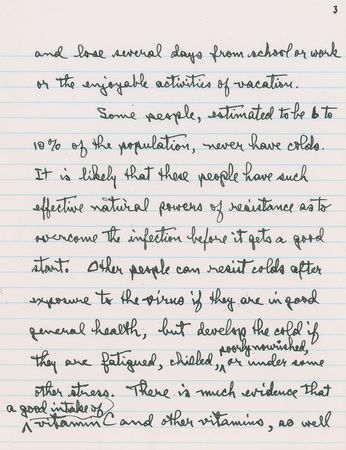 3
and lose several days from school or work
or the enjoyable activities of vacation.
Some people, estimated to be 6 to
10% of the population, never have colds.
It is likely that these people have such
effective natural powers of resistance as to
overcome the infection before it gets a good
start. Other people can resist colds after
exposure to the virus if they are in good
general health, but develop the cold if
poorly nourished,
they are fatigued, chilled, or under some
other stress. There is much evidence that
a good intake of
vitamin C and other vitamins, as well